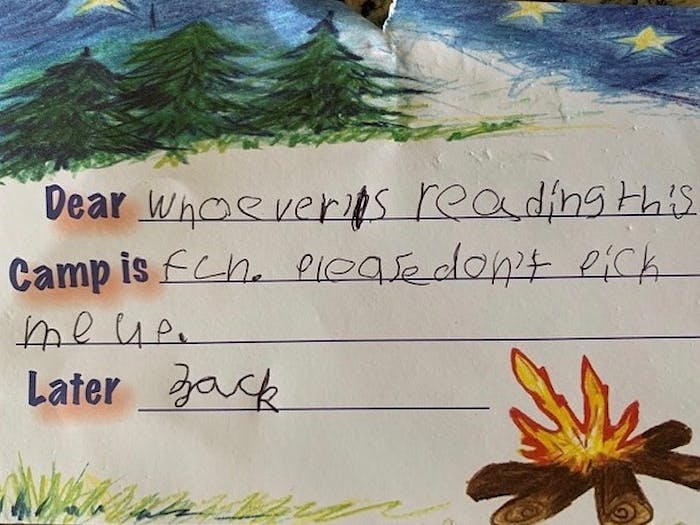 Dear Whoever is reading this
Camp is fun. please don't pick
me up.
Later Zack